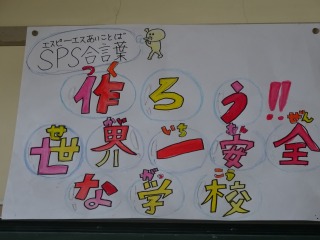 エスピーエスあいことば
SPS合言葉
つく
作ろう!!
せかいいちあんぜん
世界一安全
がっこう
な学校